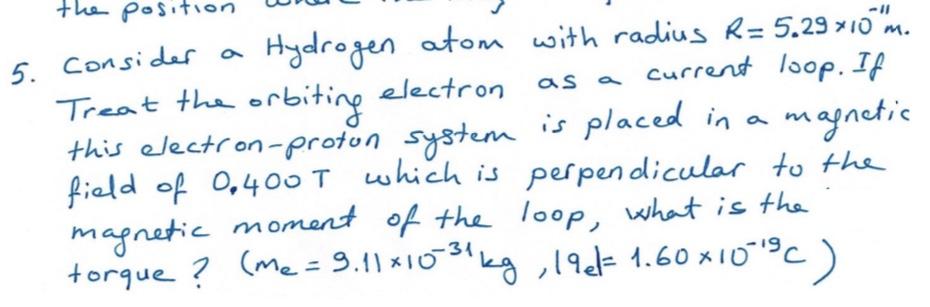 the position
5. Consider a Hydrogen atom with radius R = 5.29 × 10⁻¹¹ m.
Treat the orbiting electron as a current loop. If
this electron-proton system is placed in a magnetic
field of 0.400 T which is perpendicular to the
magnetic moment of the loop, what is the
torque ? (me = 9.11 × 10⁻³¹ kg , |qe| = 1.60 × 10⁻¹⁹ C )